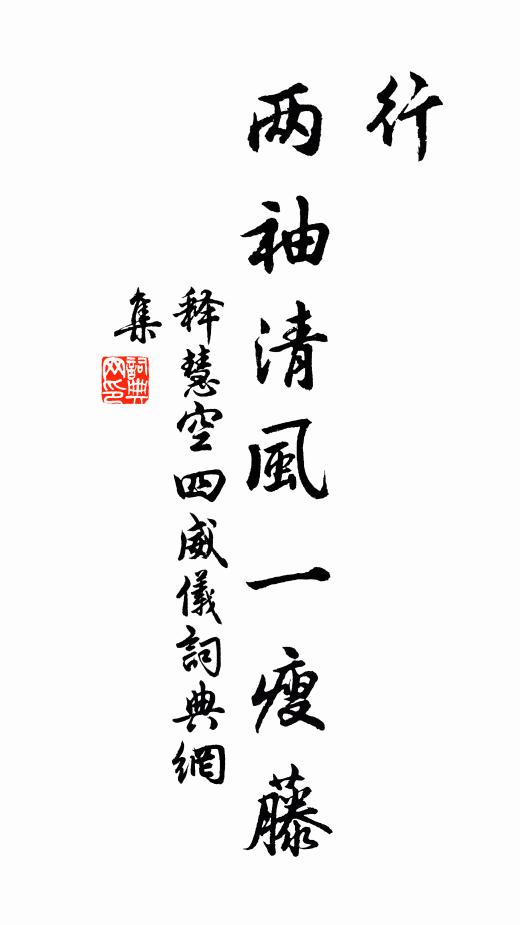 行
两袖清風一瘦藤
释慧空四威儀詞典網
集
詞典
网印